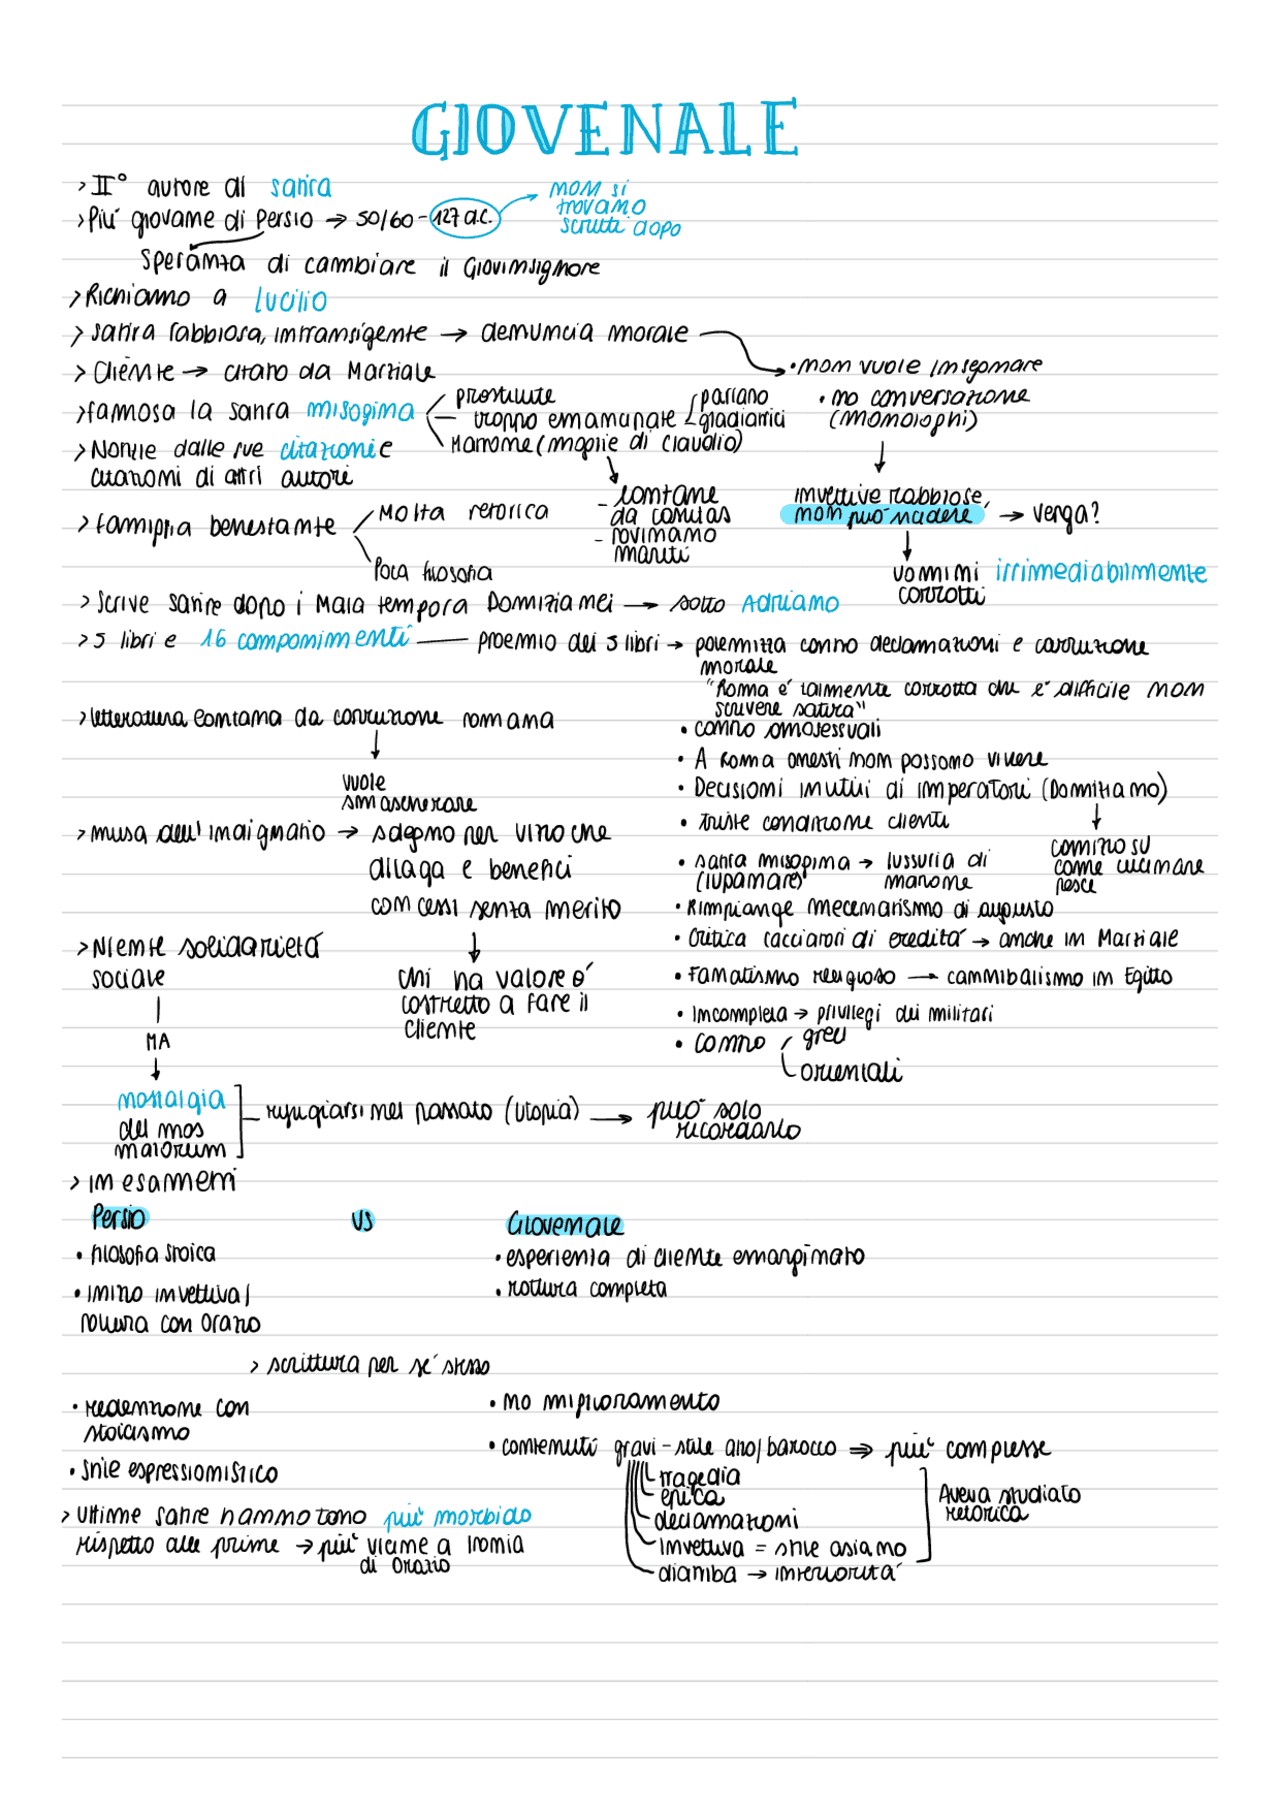 GIOVENALE
> II° autore di satira
> Più giovane di Persio → 50/60 - 127 d.C. → non si trovano scritti dopo
Speranza di cambiare il Giovin signore
> Richiamo a Lucilio
> satira rabbiosa, intransigente → denuncia morale
• non vuole insegnare
• no conversazione (monologhi)
> Cliente → citato da Marziale
> famosa la satira misogina
prostitute
troppo emancipate
parlano
gladiatrici
Matrone (moglie di Claudio)
- lontane da canitas
- rovinano mariti
invettive rabbiose, non può ridere → verga?
uomini irrimediabilmente corrotti
> Notizie dalle sue citazioni e
citazioni di altri autori
> famiglia benestante
Molta retorica
Poca filosofia
> Scrive satire dopo i Mala tempora Domizianei → sotto Adriano
> 5 libri e 16 componimenti — proemio dei 5 libri → polemizza contro declamazioni e corruzione
morale
"Roma è talmente corrotta che è difficile non
scrivere satira"
• contro omosessuali
• A Roma onesti non possono vivere
• Decisioni inutili di imperatori (Domiziano)
comizio su
come cucinare
pesce
• Triste condizione clienti
• satira misogina → lussuria di
(lupanare) matrone
• Rimpiange mecenatismo di augusto
• Critica cacciatori di eredità → anche in Marziale
• Fanatismo religioso → cannibalismo in Egitto
• Incompleta → privilegi dei militari
• contro
greci
orientali
> letteratura lontana da corruzione romana
vuole
smascherare
> musa dell'indignatio → sdegno per vizio che
dilaga e benefici
concessi senza merito
chi ha valore è
costretto a fare il
cliente
> Niente solidarietà
sociale
MA
nostalgia
del mos
maiorum
rifugiarsi nel passato (utopia) → può solo
ricordarlo
> in esametri
Persio vs Giovenale
• filosofia stoica
• inizio invettiva /
rottura con Orazio
• esperienza di cliente emarginato
• rottura completa
> scrittura per sé stesso
• redenzione con
stoicismo
• Stile espressionistico
• no miglioramento
• contenuti gravi - stile alto/barocco ⇒ più complesse
tragedia
epica
declamazioni
invettiva = stile asiano
diatriba → interiorità
Aveva studiato
retorica
> Ultime satire hanno tono più morbido
rispetto alle prime → più vicine a ironia
di Orazio